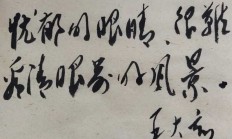 忧郁的眼睛，很难
看清眼前的风景。
王大和